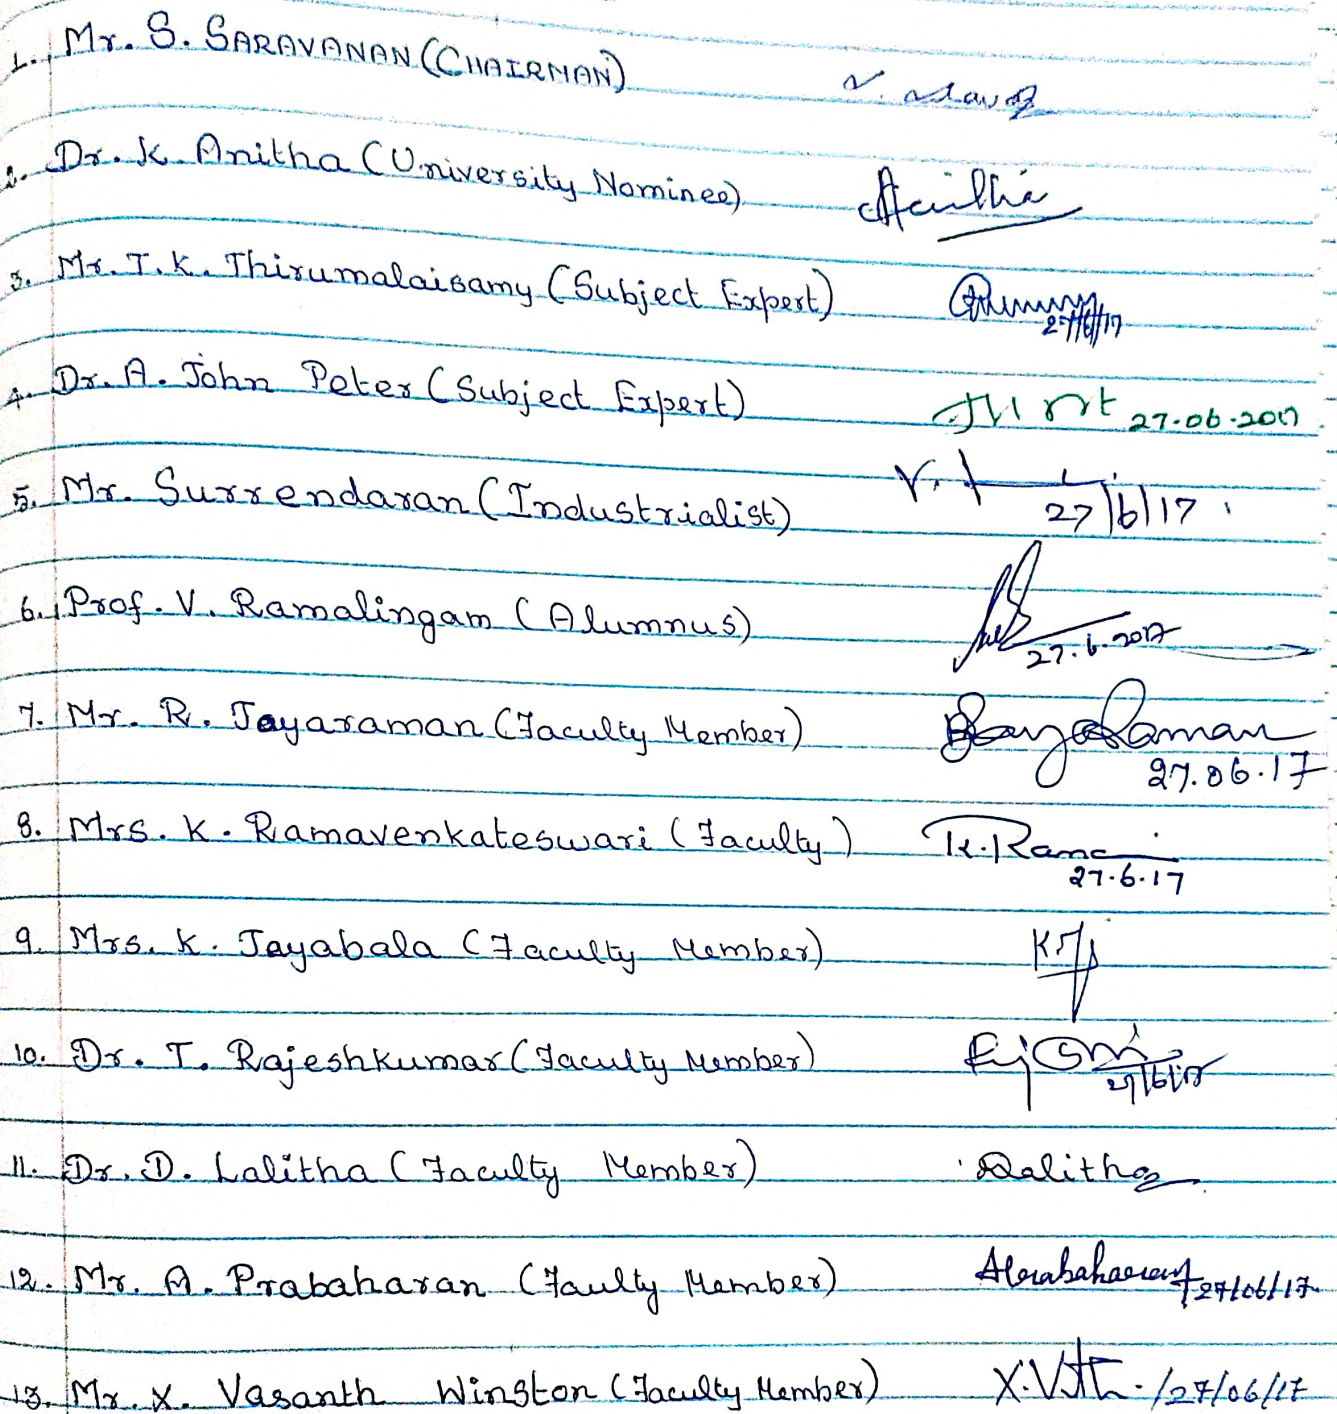 1. Mr. S. SARAVANAN (CHAIRMAN)
2. Dr. K. Anitha (University Nominee)
3. Mr. T. K. Thirumalaisamy (Subject Expert) 27/6/17
4. Dr. A. John Peter (Subject Expert) 27.06.2017
5. Mr. Surrendaran (Industrialist) 27/6/17
6. Prof. V. Ramalingam (Alumnus) 27.6.2017
7. Mr. R. Jayaraman (Faculty Member) Jayaraman
27.06.17
8. Mrs. K. Ramavenkateswari (Faculty) K. Rama
27.6.17
9. Mrs. K. Jayabala (Faculty Member)
10. Dr. T. Rajeshkumar (Faculty Member) 27/6/17
11. Dr. D. Lalitha (Faculty Member) Dalitha
12. Mr. A. Prabaharan (Faulty Member) A Prabaharan 27/06/17
13. Mr. X. Vasanth Winston (Faculty Member) 27/06/17